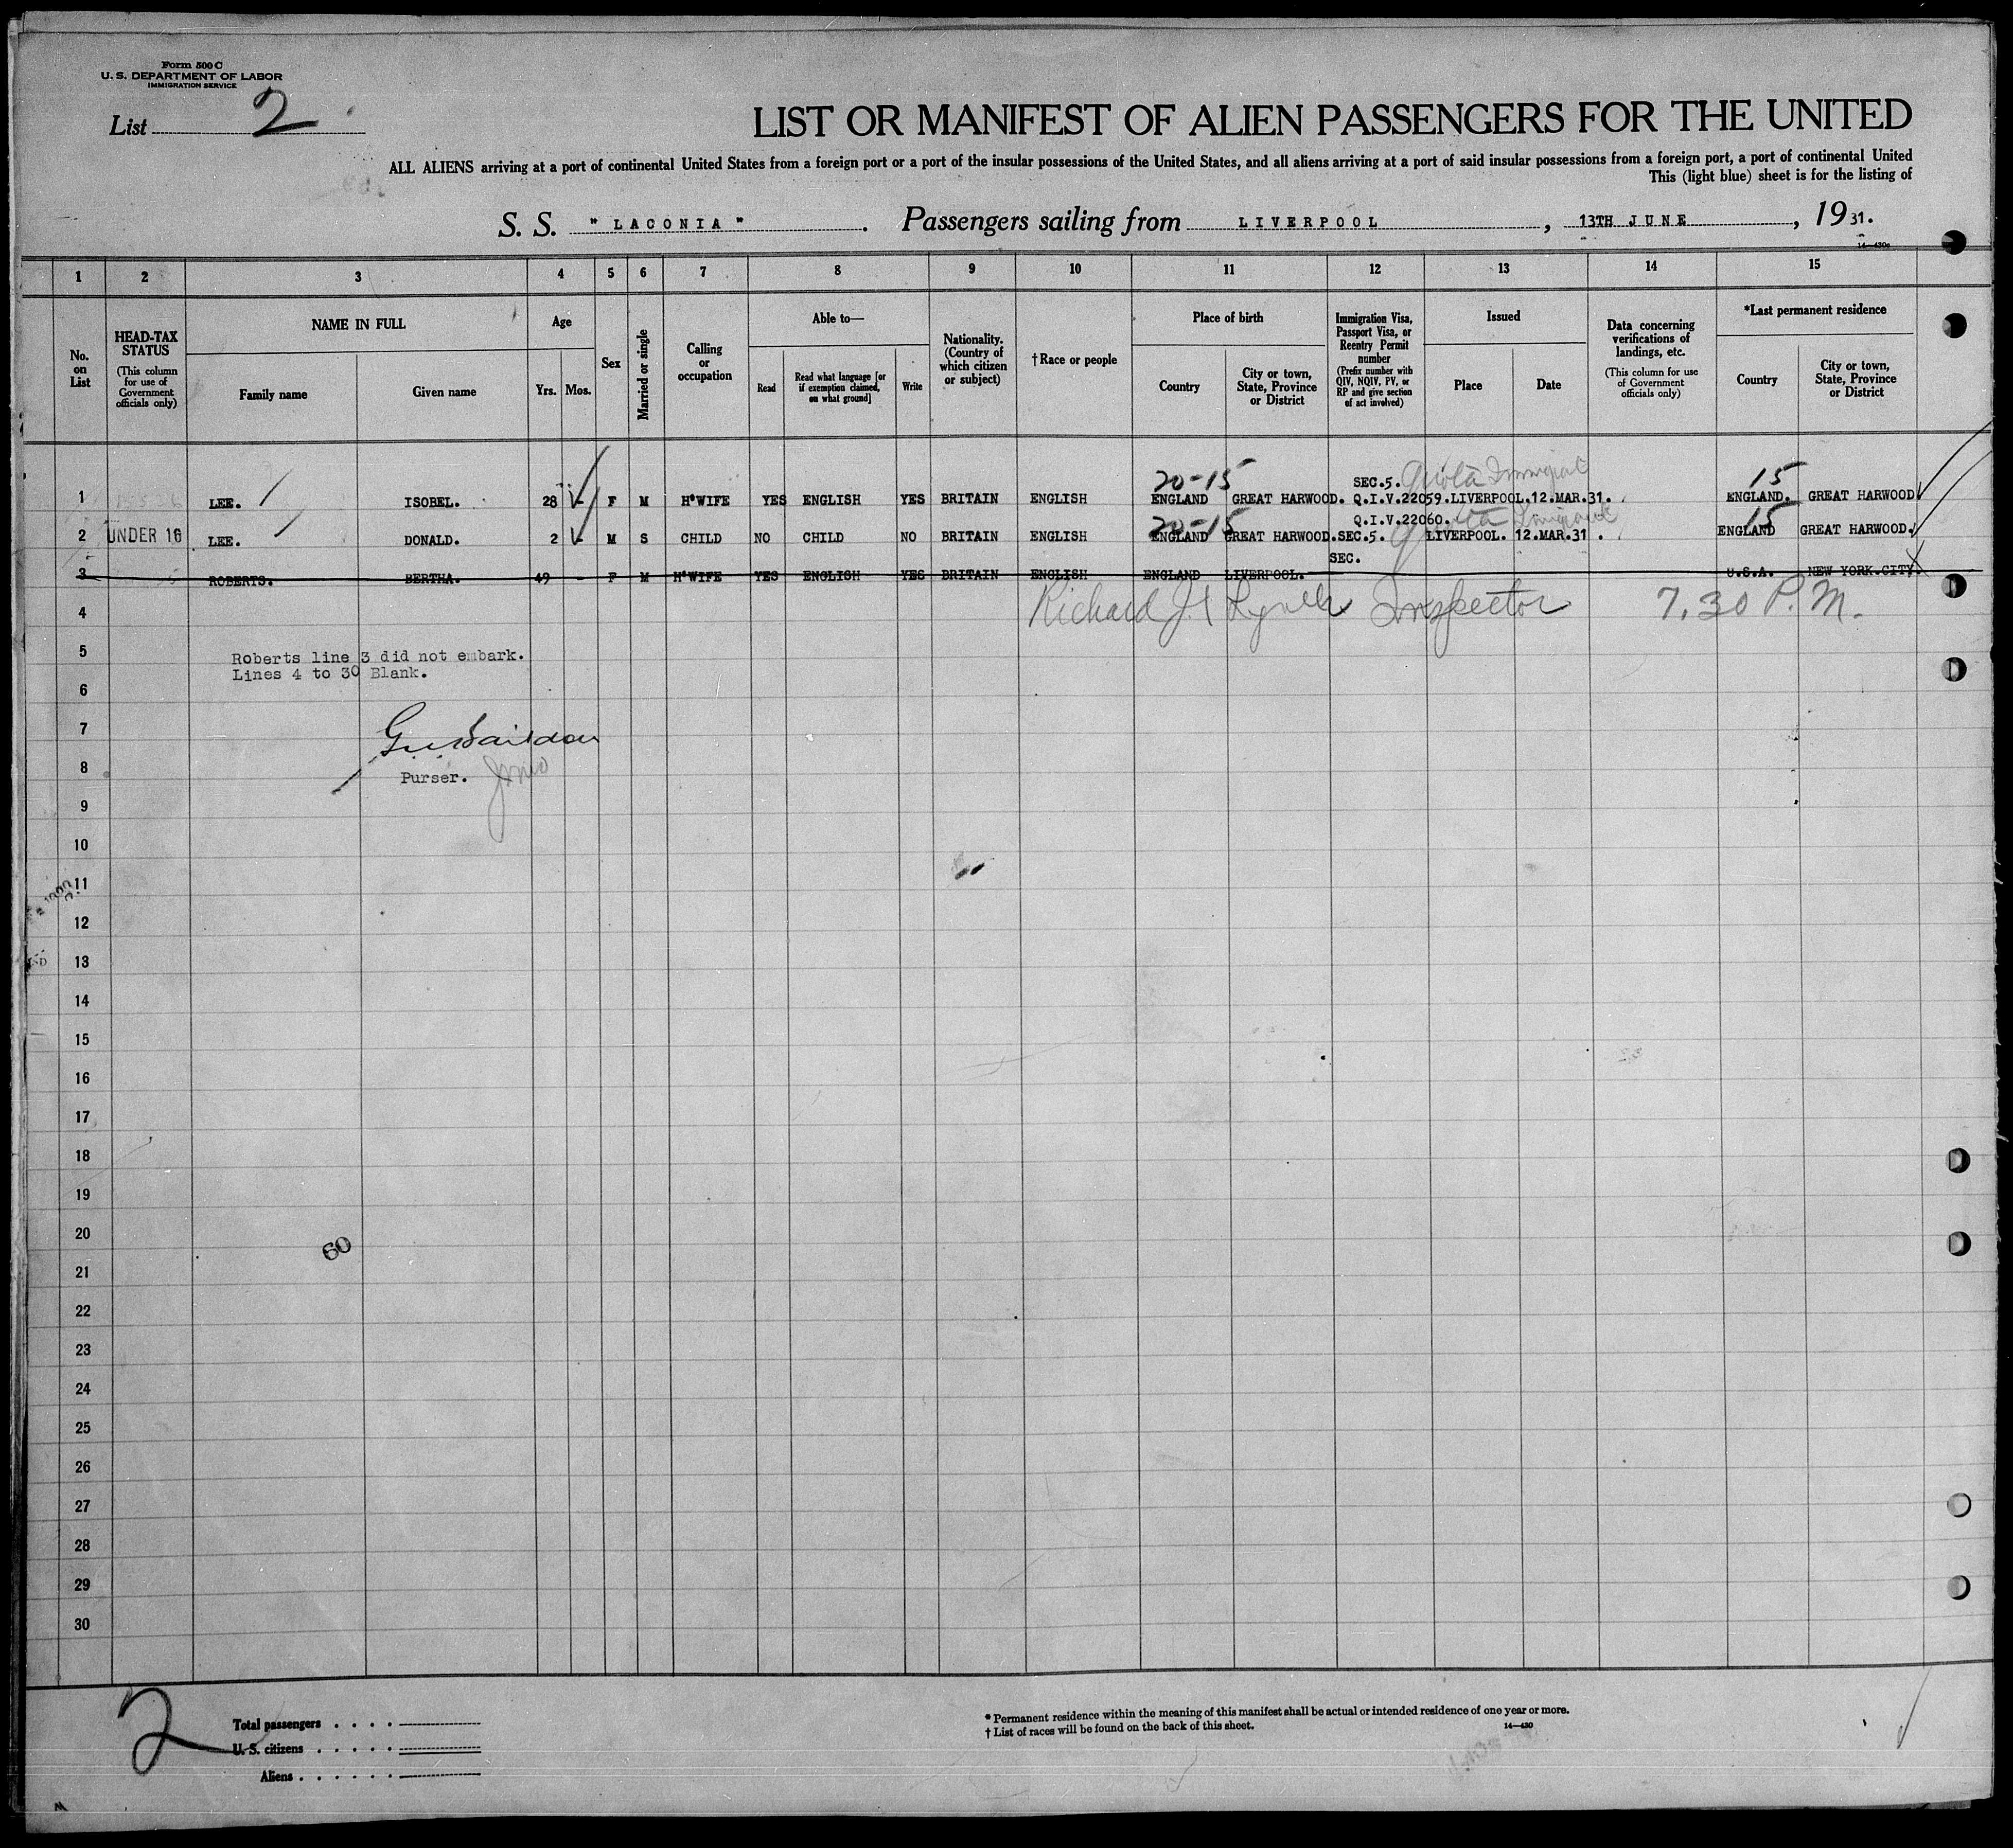 Form 500 C
U. S. DEPARTMENT OF LABOR
IMMIGRATION SERVICE
List 2
LIST OR MANIFEST OF ALIEN PASSENGERS FOR THE UNITED
ALL ALIENS arriving at a port of continental United States from a foreign port or a port of the insular possessions of the United States, and all aliens arriving at a port of said insular possessions from a foreign port, a port of continental United
This (light blue) sheet is for the listing of
S. S. "LACONIA". Passengers sailing from LIVERPOOL, 13TH JUNE, 1931.
14-430a
1 2 3 4 5 6 7 8 9 10 11 12 13 14 15
No. on List
HEAD-TAX STATUS
(This column for use of Government officials only)
NAME IN FULL
Family name
Given name
Age
Yrs. Mos.
Sex
Married or single
Calling or occupation
Able to—
Read
Read what language [or if exemption claimed, on what ground]
Write
Nationality. (Country of which citizen or subject)
†Race or people
Place of birth
Country
City or town, State, Province or District
Immigration Visa, Passport Visa, or Reentry Permit number
(Prefix number with QIV, NQIV, PV, or RP and give section of act involved)
Issued
Place
Date
Data concerning verifications of landings, etc.
(This column for use of Government officials only)
*Last permanent residence
Country
City or town, State, Province or District
20-15 SEC.5. Quota Immigrant 15
1 LEE. ISOBEL. 28 - F M H'WIFE YES ENGLISH YES BRITAIN ENGLISH ENGLAND GREAT HARWOOD. Q.I.V.22059. LIVERPOOL. 12.MAR.31. ENGLAND. GREAT HARWOOD
20-15 Q.I.V.22060. Quota Immigrant 15
2 UNDER 16 LEE. DONALD. 2 - M S CHILD NO CHILD NO BRITAIN ENGLISH ENGLAND GREAT HARWOOD. SEC.5. LIVERPOOL. 12.MAR.31. ENGLAND GREAT HARWOOD.
SEC.
3 ROBERTS. BERTHA. 49 - F M H'WIFE YES ENGLISH YES BRITAIN ENGLISH ENGLAND LIVERPOOL. U.S.A. NEW YORK.CITY.
4 Richard J. Lynch Inspector 7.30 P.M.
5 Roberts line 3 did not embark.
Lines 4 to 30 Blank.
6
7
8 Purser.
9
10
11
12
13
14
15
16
17
18
19
20
60
21
22
23
24
25
26
27
28
29
30
2
Total passengers
U. S. citizens
Aliens
* Permanent residence within the meaning of this manifest shall be actual or intended residence of one year or more.
† List of races will be found on the back of this sheet.
14-430